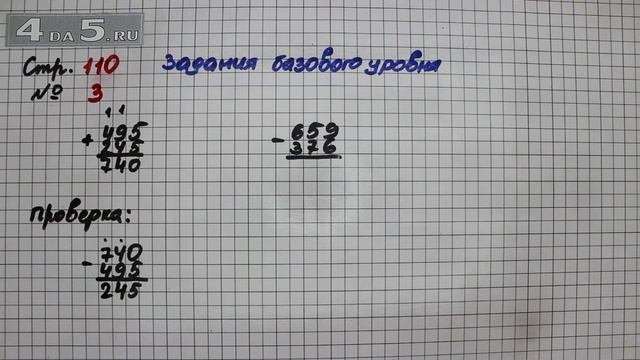 4 DA 5.RU
Стр. 110 Задания базового уровня
№ 3
1 1
+ 495
245
740
- 659
376
Проверка:
- 740
495
245